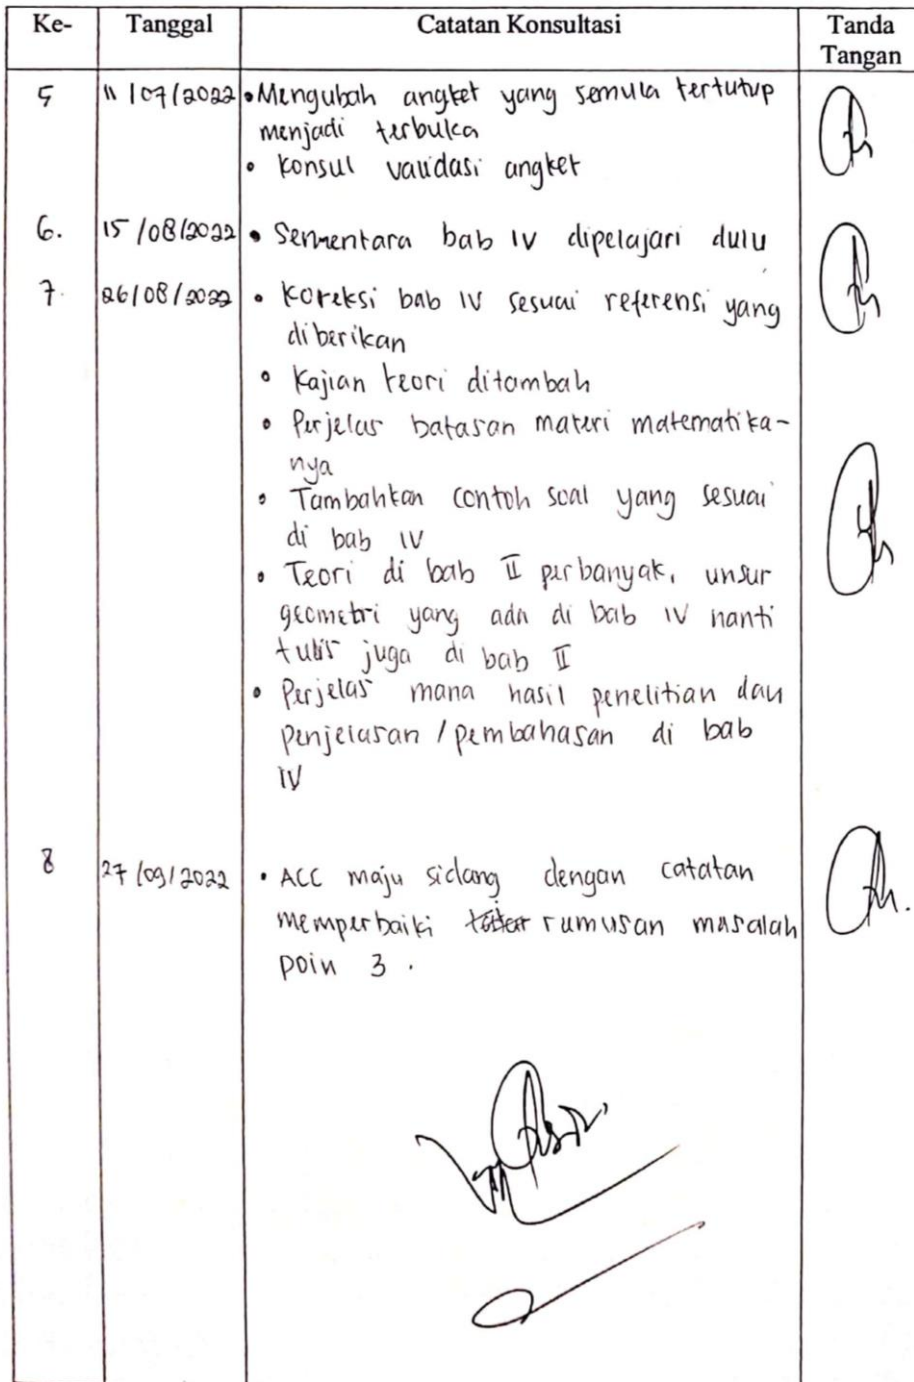 Ke- Tanggal Catatan Konsultasi Tanda
Tangan
5 11/07/2022 • Mengubah angket yang semula tertutup
menjadi terbuka
• Konsul validasi angket
6. 15/08/2022 • Sementara bab IV dipelajari dulu
7. 26/08/2022 • Koreksi bab IV sesuai referensi yang
diberikan
• Kajian teori ditambah
• Perjelas batasan materi matematika-
nya
• Tambahkan contoh soal yang sesuai
di bab IV
• Teori di bab II perbanyak, unsur
geometri yang ada di bab IV nanti
tulis juga di bab II
• Perjelas mana hasil penelitian dan
penjelasan / pembahasan di bab
IV
8 27/09/2022 • ACC maju sidang dengan catatan
memperbaiki rumusan masalah
poin 3.